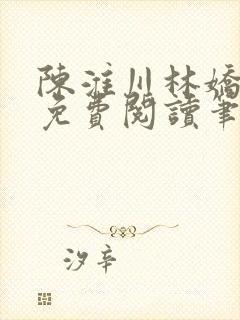 陳淮川林嬌
免費閱讀筆
汐辛